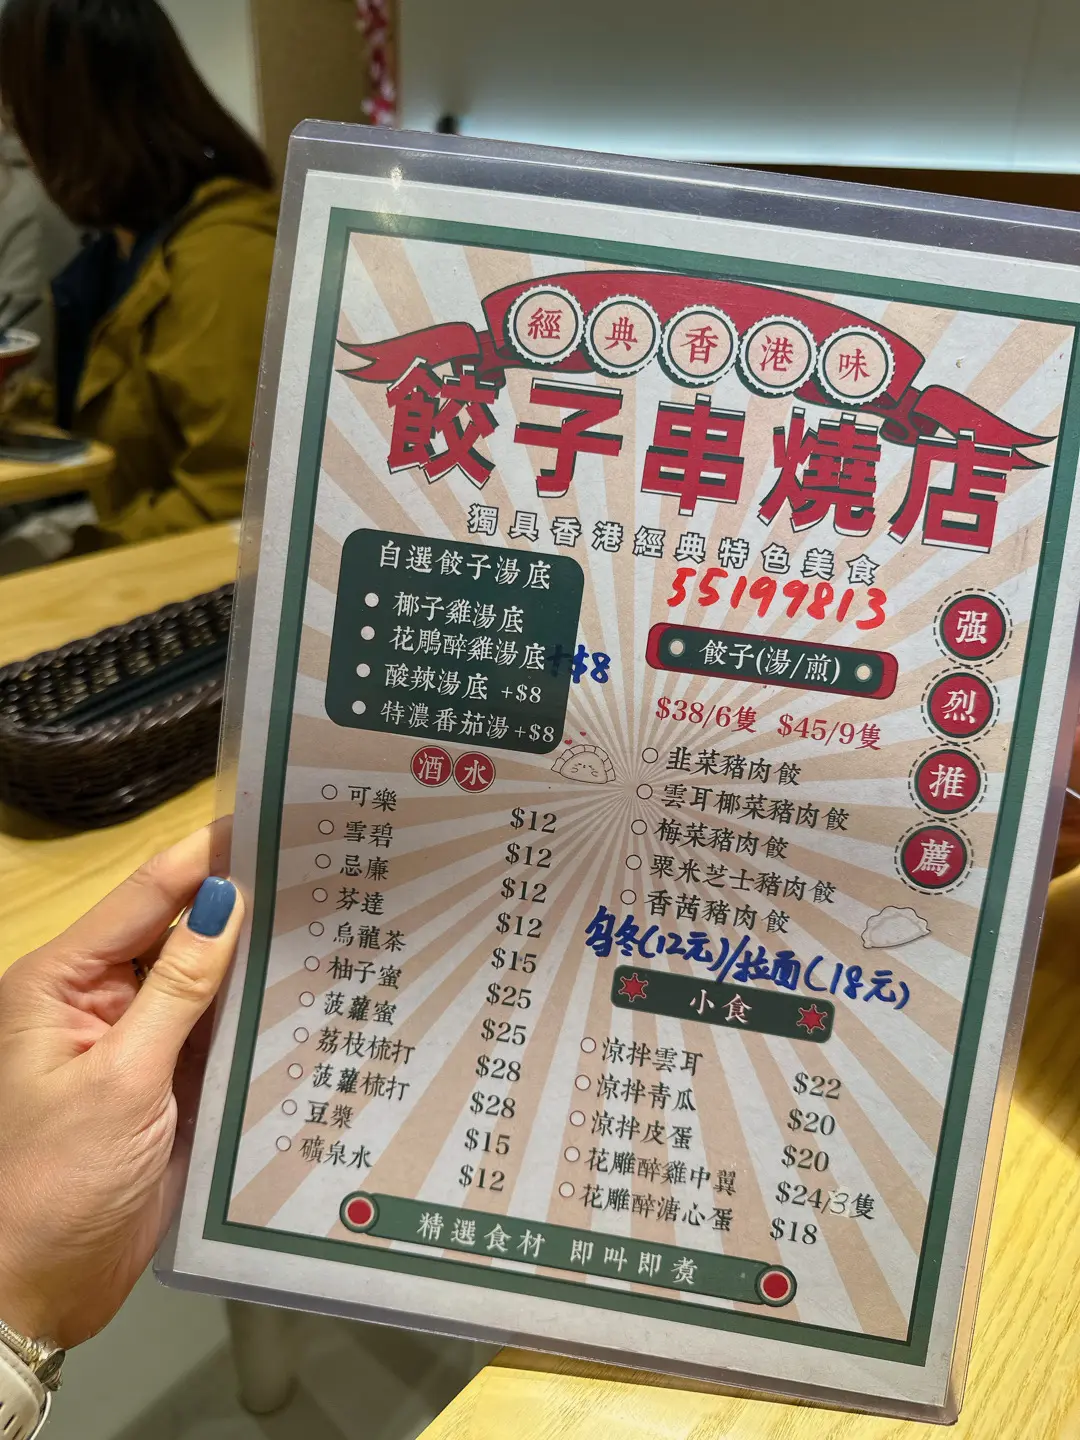 經典香港味
餃子串燒店
獨具香港經典特色美食
55199813
自選餃子湯底
椰子雞湯底
花鵰醉雞湯底 +$8
酸辣湯底 +$8
特濃番茄湯 +$8
酒水
可樂 $12
雪碧 $12
忌廉 $12
芬達 $12
烏龍茶 $15
柚子蜜 $25
菠蘿蜜 $25
荔枝梳打 $28
菠蘿梳打 $28
豆漿 $15
礦泉水 $12
餃子(湯/煎)
$38/6隻 $45/9隻
韭菜豬肉餃
雲耳椰菜豬肉餃
梅菜豬肉餃
粟米芝士豬肉餃
香茜豬肉餃
强烈推薦
乌冬(12元)/拉面(18元)
小食
涼拌雲耳 $22
涼拌青瓜 $20
涼拌皮蛋 $20
花雕醉雞中翼 $24/3隻
花雕醉溏心蛋 $18
精選食材 即叫即煮